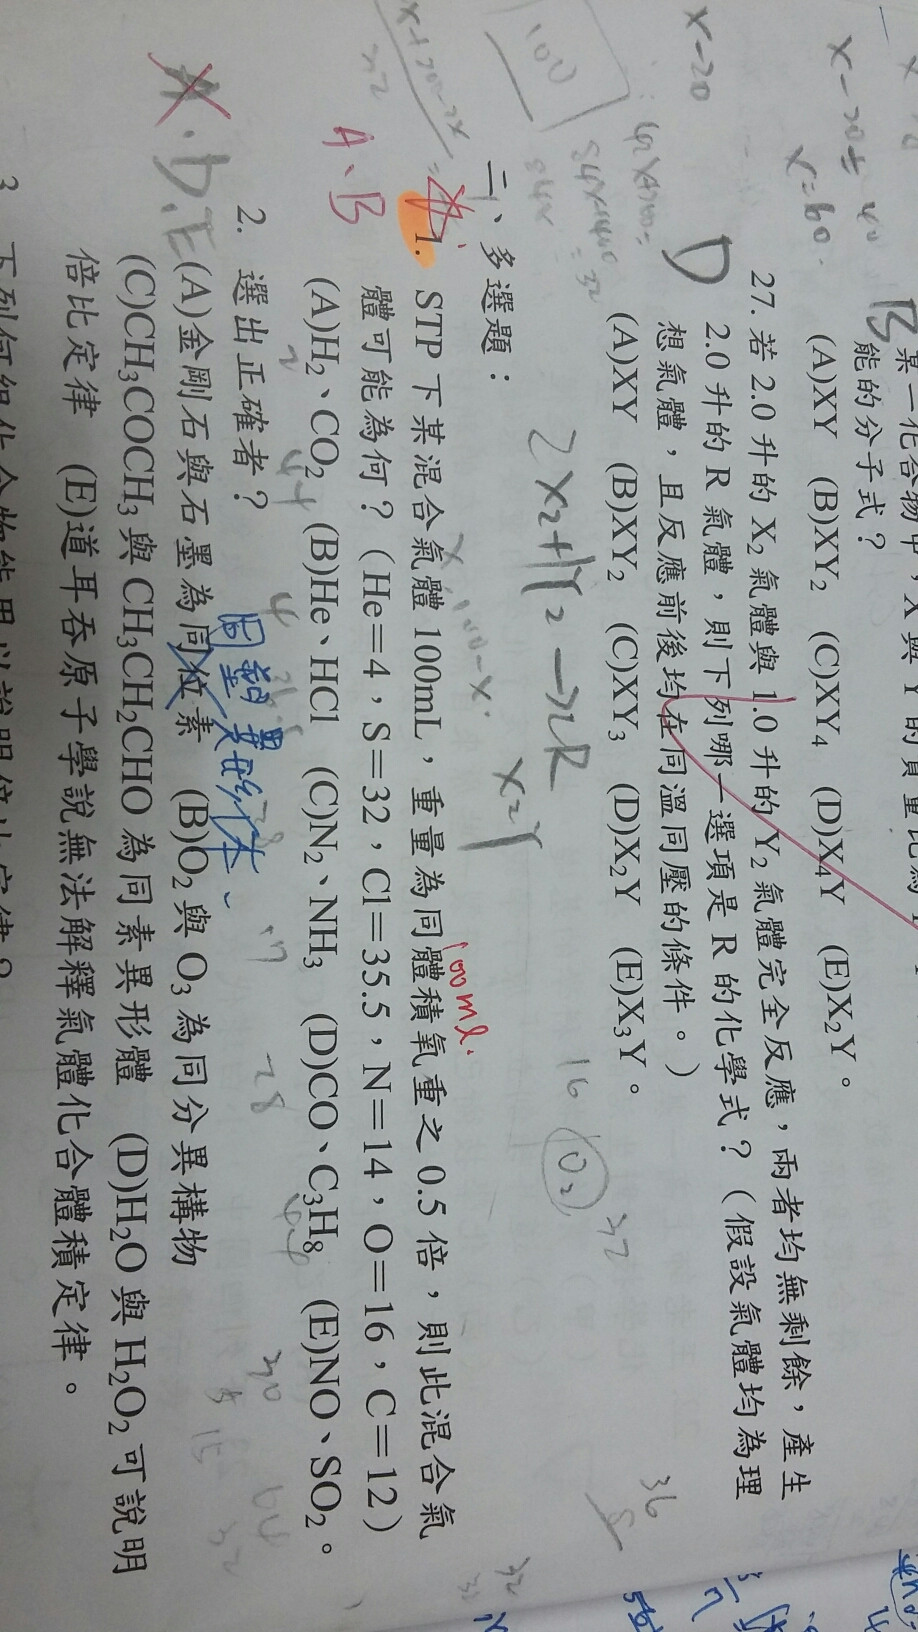 x-20= 40
x=60
x-20
B
能的分子式？
(A)XY (B)XY₂ (C)XY₄ (D)X₄Y (E)X₂Y。
D
27. 若 2.0 升的 X₂ 氣體與 1.0 升的 Y₂ 氣體完全反應，兩者均無剩餘，產生
2.0 升的 R 氣體，則下列哪一選項是 R 的化學式？（假設氣體均為理
想氣體，且反應前後均在同溫同壓的條件。）
(A)XY (B)XY₂ (C)XY₃ (D)X₂Y (E)X₃Y。
2X₂+1Y₂→2R
X₂Y
16 O₂ 32
36
100
二、多選題：
100-x
100ml.
A、B
1. STP 下某混合氣體 100mL，重量為同體積氧重之 0.5 倍，則此混合氣
體可能為何？（He＝4，S＝32，Cl＝35.5，N＝14，O＝16，C＝12）
(A)H₂、CO₂ (B)He、HCl (C)N₂、NH₃ (D)CO、C₃H₈ (E)NO、SO₂。
2 44 4 28 17 28 44 30 64
2. 選出正確者？
同素異形体
A.D.E
(A)金剛石與石墨為同位素 (B)O₂ 與 O₃ 為同分異構物
(C)CH₃COCH₃ 與 CH₃CH₂CHO 為同素異形體 (D)H₂O 與 H₂O₂ 可說明
倍比定律 (E)道耳吞原子學說無法解釋氣體化合體積定律。
3 下列何組化合物能用以說明倍比定律？